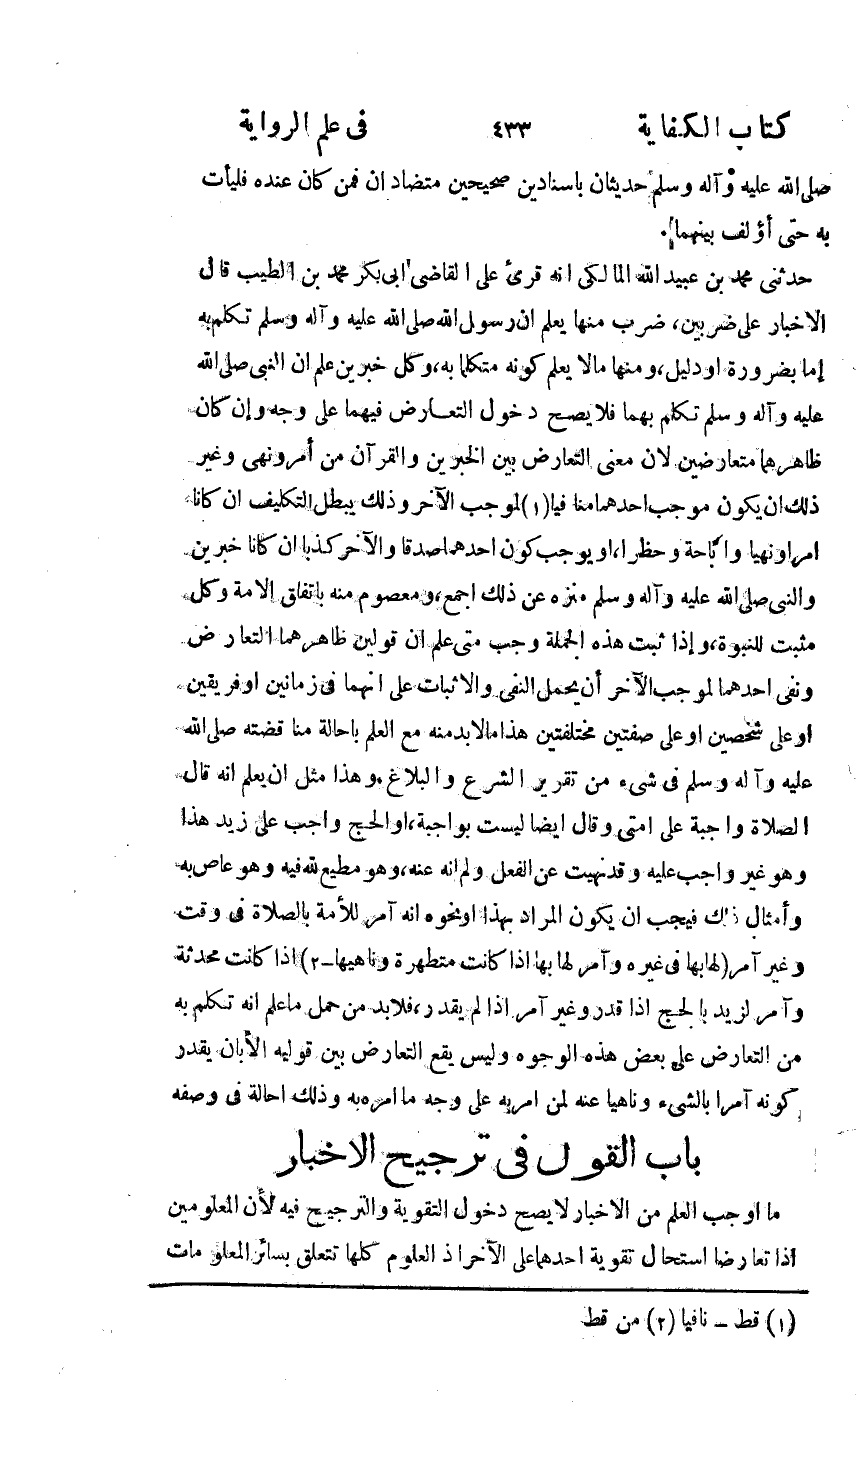 كتاب الكفاية ٤٣٣ فى علم الرواية
صلى الله عليه وآله وسلم حديثان باسنادين صحيحين متضادان فمن كان عنده فليأت
به حتى أؤلف بينهما.
حدثنى محمد بن عبيد الله المالكى انه قرئ على القاضى ابى بكر محمد بن الطيب قال
الاخبار على ضربين، ضرب منها يعلم ان رسول الله صلى الله عليه وآله وسلم تكلم به
إما بضرورة او دليل، ومنها مالا يعلم كونه متكلما به، وكل خبرين علم ان النبى صلى الله
عليه وآله وسلم تكلم بهما فلا يصح دخول التعارض فيهما على وجه وإن كان
ظاهرهما متعارضين لان معنى التعارض بين الخبرين والقرآن من أمر ونهى وغير
ذلك ان يكون موجب احدهما منافيا (١) لموجب الآخر وذلك يبطل التكليف ان كانا
امرا ونهيا واباحة وحظرا، او يوجب كون احدهما صدقا والآخر كذبا ان كانا خبرين
والنبى صلى الله عليه وآله وسلم منزه عن ذلك اجمع، ومعصوم منه باتفاق الامة وكل
مثبت للنبوة، وإذا ثبت هذه الجملة وجب متى علم ان قولين ظاهرهما التعارض
ونفى احدهما لموجب الآخر أن يحمل النفى والاثبات على انهما فى زمانين او فريقين
او على شخصين او على صفتين مختلفتين هذا مالا بد منه مع العلم باحالة مناقضته صلى الله
عليه وآله وسلم فى شىء من تقرير الشرع والبلاغ. وهذا مثل ان يعلم انه قال
الصلاة واجبة على امتى وقال ايضا ليست بواجبة، او الحج واجب على زيد هذا
وهو غير واجب عليه وقد نهيت عن الفعل ولم انه عنه، وهو مطيع لله فيه وهو عاص به
وأمثال ذلك فيجب ان يكون المراد بهذا او نحوه انه آمر للأمة بالصلاة فى وقت
وغير آمر (لها بها فى غيره وآمر لها بها اذا كانت متطهرة وناهيها -٢) اذا كانت محدثة
وآمر لزيد بالحج اذا قدر وغير آمر اذا لم يقدر، فلا بد من حمل ما علم انه تكلم به
من التعارض على بعض هذه الوجوه وليس يقع التعارض بين قوليه الأبان يقدر
كونه آمرا بالشىء وناهيا عنه لمن امر به على وجه ما امره به وذلك احالة فى وصفه
باب القول فى ترجيح الاخبار
ما اوجب العلم من الاخبار لا يصح دخول التقوية والترجيح فيه لأن المعلومين
اذا تعارضا استحال تقوية احدهما على الآخر اذ العلوم كلها تتعلق بسائر المعلومات
(١) قط – نافيا (٢) من قط